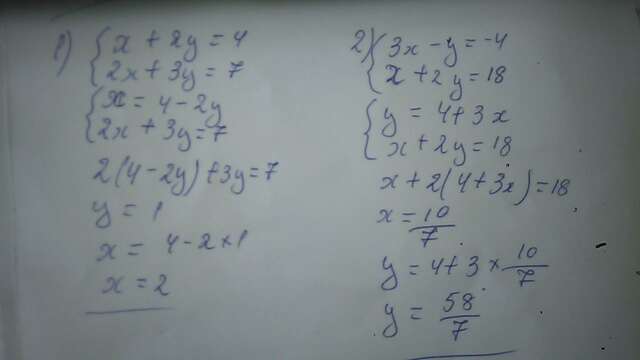 1) { x + 2y = 4
2x + 3y = 7
{ x = 4 - 2y
2x + 3y = 7
2(4 - 2y) + 3y = 7
y = 1
x = 4 - 2 × 1
x = 2
2) { 3x - y = -4
x + 2y = 18
{ y = 4 + 3x
x + 2y = 18
x + 2(4 + 3x) = 18
x = 10/7
y = 4 + 3 × 10/7
y = 58/7